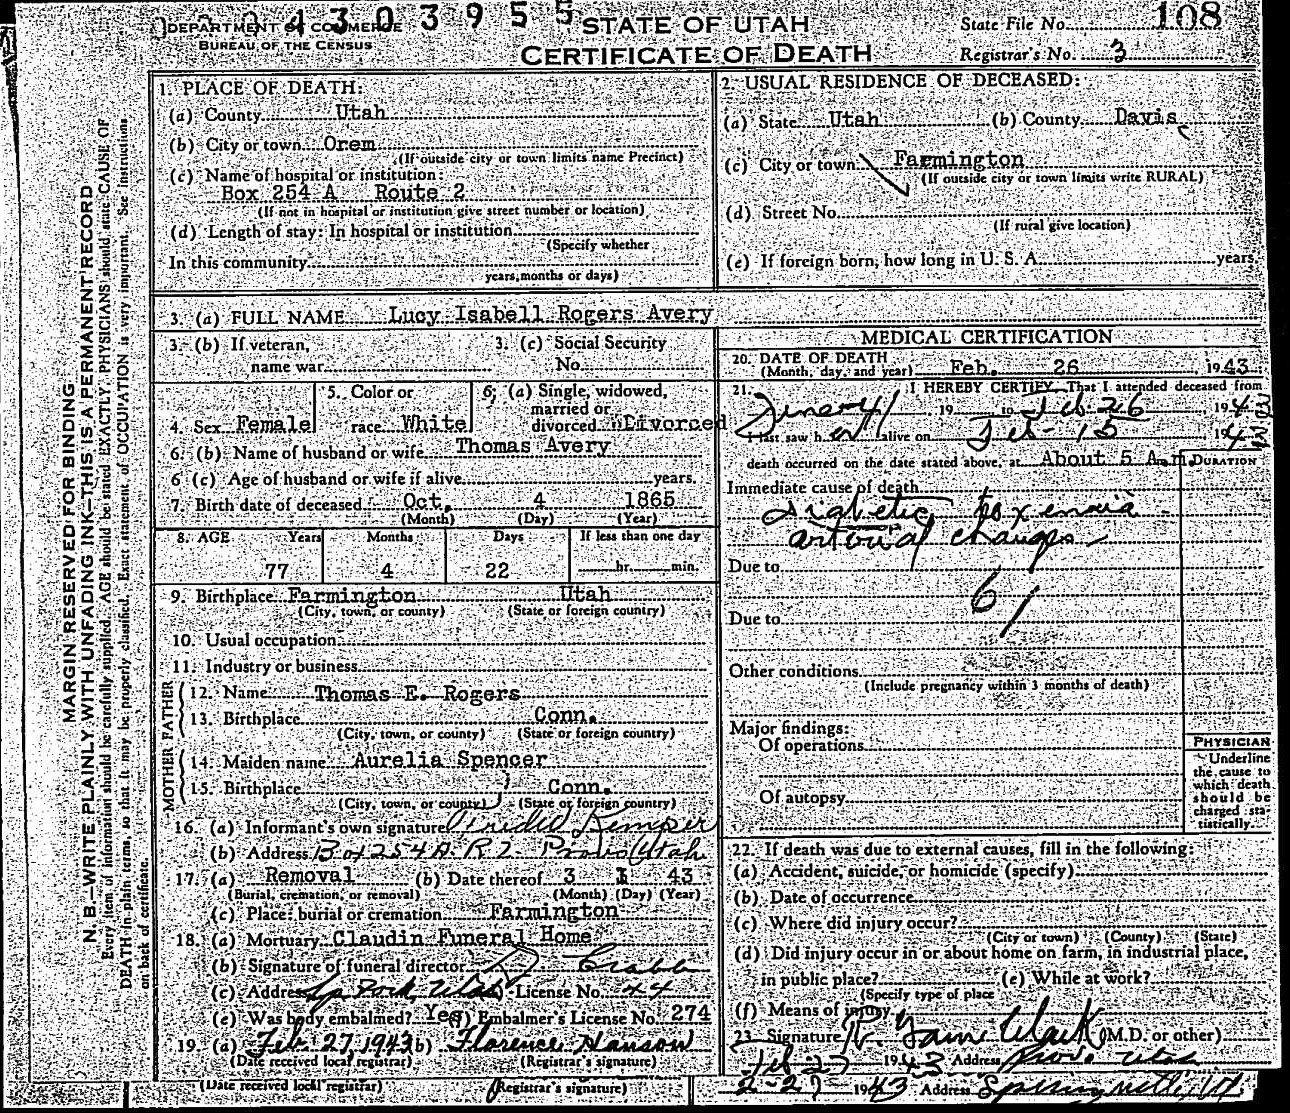 DEPARTMENT OF COMMERCE
BUREAU OF THE CENSUS
4 3 0 3 9 5 5
STATE OF UTAH
CERTIFICATE OF DEATH
State File No. 108
Registrar's No. 3
MARGIN RESERVED FOR BINDING
N. B.—WRITE PLAINLY WITH UNFADING INK—THIS IS A PERMANENT RECORD
Every item of information should be carefully supplied. AGE should be stated EXACTLY. PHYSICIANS should state CAUSE OF
DEATH in plain terms, so that it may be properly classified. Exact statement of OCCUPATION is very important. See instructions
on back of certificate.
1. PLACE OF DEATH:
(a) County Utah
(b) City or town Orem
(If outside city or town limits name Precinct)
(c) Name of hospital or institution:
Box 254 A Route 2
(If not in hospital or institution give street number or location)
(d) Length of stay: In hospital or institution
(Specify whether
In this community
years, months or days)
2. USUAL RESIDENCE OF DECEASED:
(a) State Utah (b) County Davis
(c) City or town Farmington
(If outside city or town limits write RURAL)
(d) Street No.
(If rural give location)
(e) If foreign born, how long in U. S. A. years
3. (a) FULL NAME Lucy Isabell Rogers Avery
3. (b) If veteran, name war
3. (c) Social Security No.
4. Sex Female
5. Color or race White
6. (a) Single, widowed, married or divorced Divorced
6. (b) Name of husband or wife Thomas Avery
6 (c) Age of husband or wife if alive years.
7. Birth date of deceased Oct. 4 1865
(Month) (Day) (Year)
8. AGE Years Months Days If less than one day
77 4 22 hr. min.
9. Birthplace Farmington Utah
(City, town, or county) (State or foreign country)
10. Usual occupation
11. Industry or business
FATHER
12. Name Thomas E. Rogers
13. Birthplace Conn.
(City, town, or county) (State or foreign country)
MOTHER
14. Maiden name Aurelia Spencer
15. Birthplace Conn.
(City, town, or county) (State or foreign country)
16. (a) Informant's own signature Kemper
(b) Address Box 254 A. R 2 Provo Utah
17. (a) Removal (b) Date thereof 3 1 43
(Burial, cremation, or removal) (Month) (Day) (Year)
(c) Place: burial or cremation Farmington
18. (a) Mortuary Claudin Funeral Home
(b) Signature of funeral director
(c) Address Utah License No. 44
(e) Was body embalmed? Yes (f) Embalmer's License No. 274
19. (a) Feb. 27, 1943 (b) Florence Hanson
(Date received local registrar) (Registrar's signature)
(Date received local registrar) (Registrar's signature)
MEDICAL CERTIFICATION
20. DATE OF DEATH
(Month, day, and year) Feb. 26 1943
21. I HEREBY CERTIFY, That I attended deceased from
19 to Feb 26, 194
I last saw her alive on Feb - 15 194
death occurred on the date stated above, at About 5 A.m.
DURATION
Immediate cause of death
Diabetic toxemia
arterial changes
Due to
61
Due to
Other conditions
(Include pregnancy within 3 months of death)
Major findings:
Of operations
Of autopsy
PHYSICIAN
Underline
the cause to
which death
should be
charged sta-
tistically.
22. If death was due to external causes, fill in the following:
(a) Accident, suicide, or homicide (specify)
(b) Date of occurrence
(c) Where did injury occur?
(City or town) (County) (State)
(d) Did injury occur in or about home on farm, in industrial place,
in public place? (e) While at work?
(Specify type of place
(f) Means of injury
23. Signature Clark (M.D. or other)
Feb 27 1943 Address Provo Utah
2-27 1943 Address Springville, Ut